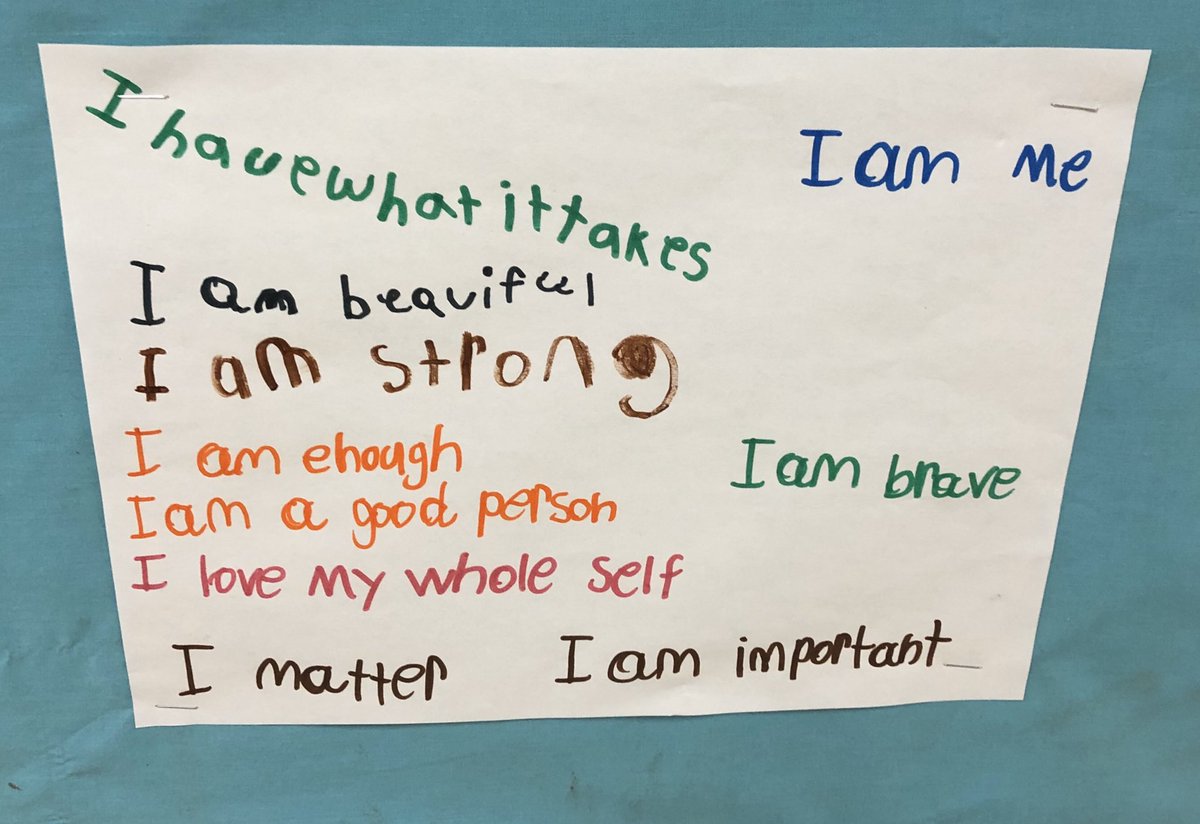 I have what it takes
I am me
I am beauiful
I am strong
I am enough
I am brave
I am a good person
I love my whole self
I matter
I am important